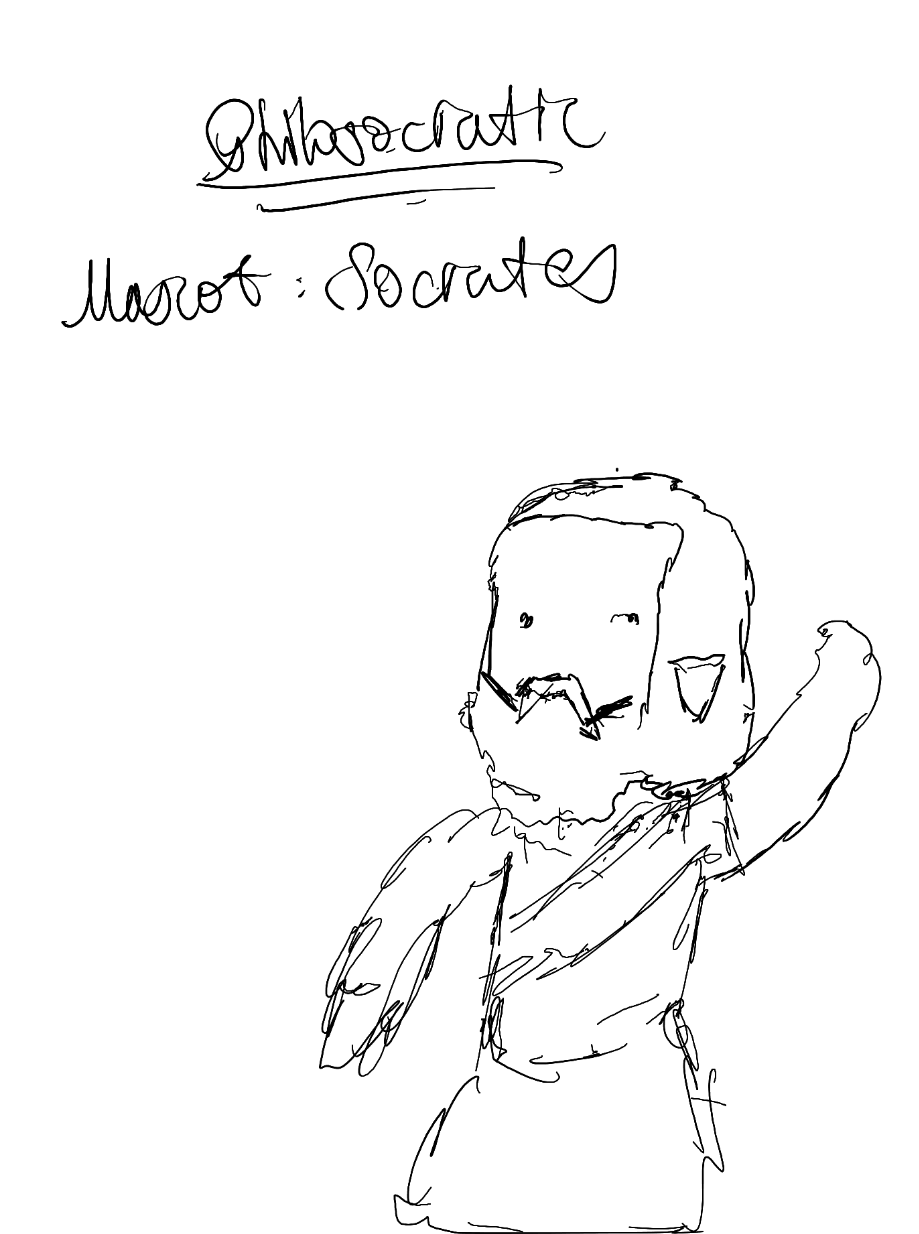 Philosocratic
Mascot : Socrates